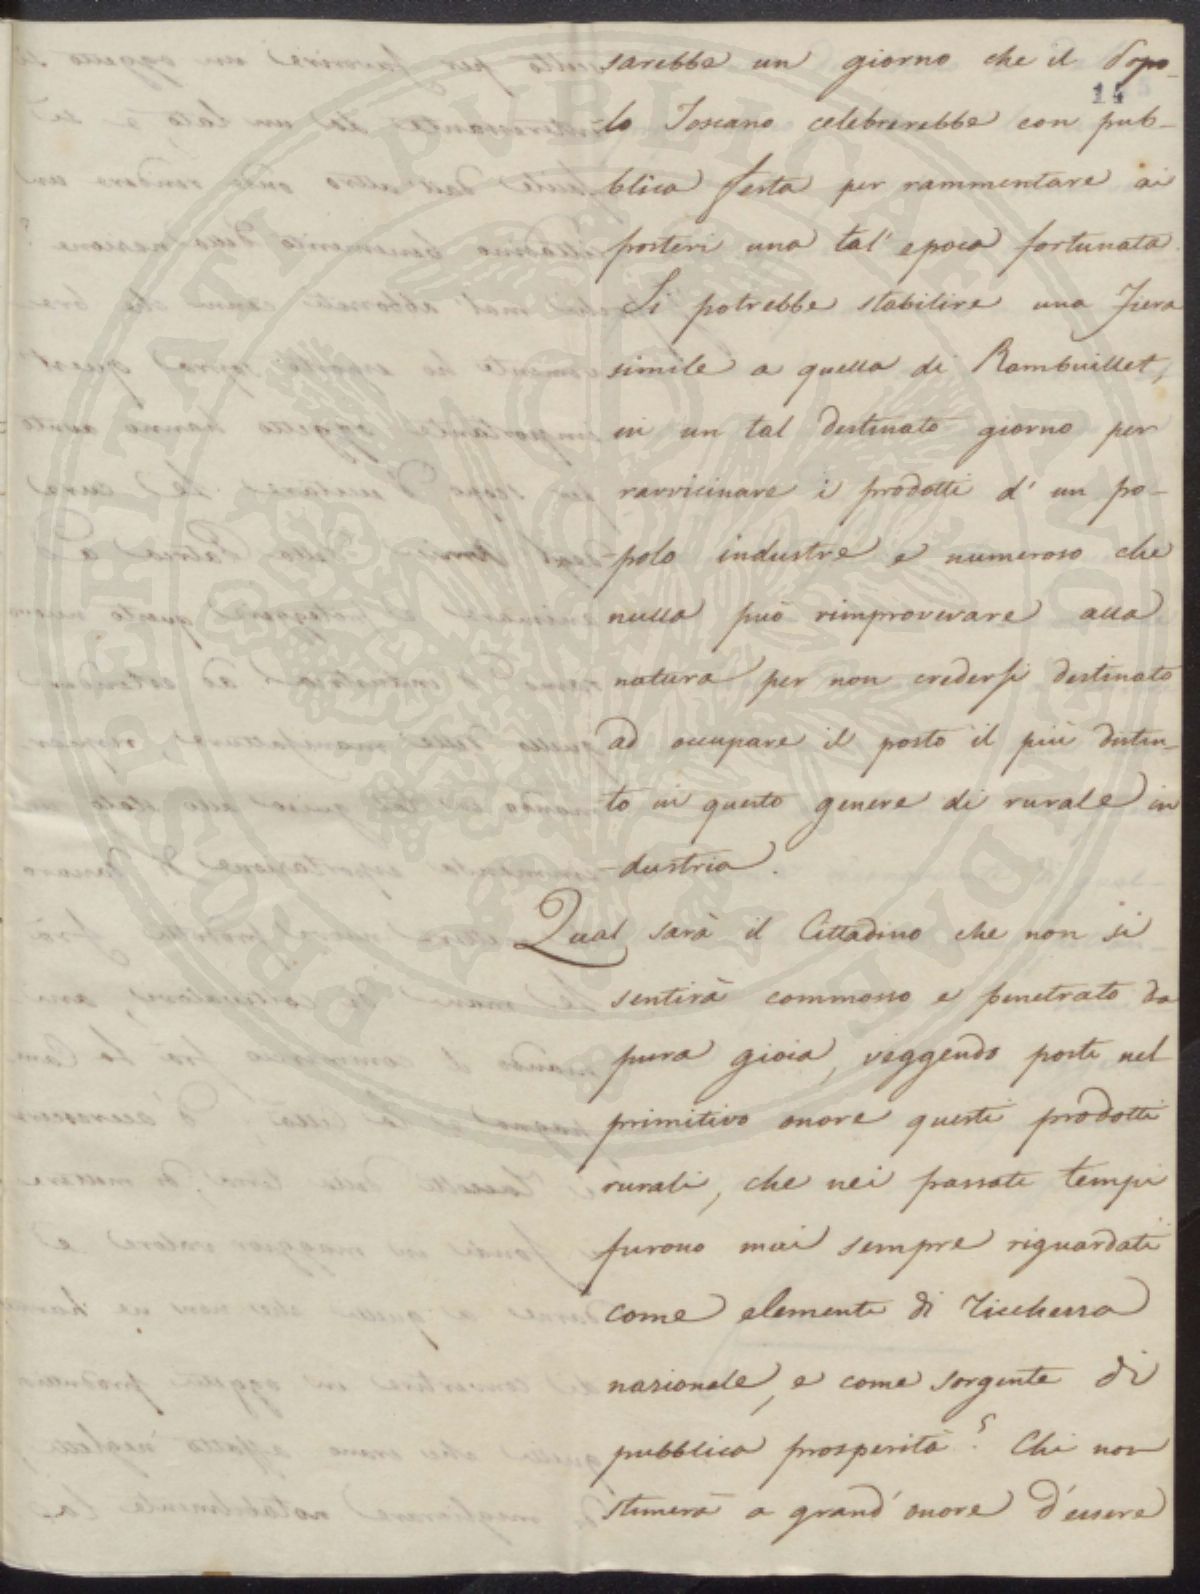 sarebbe un giorno che il Popo-
14
lo Toscano celebrerebbe con pub-
blica festa per rammentare ai
posteri una tal' epoca fortunata.
Si potrebbe stabilire una Fiera
simile a quella di Rambuillet,
in un tal destinato giorno per
ravvicinare i prodotti d' un po-
-polo industre e numeroso che
nulla può rimproverare alla
natura per non credersi destinato
ad occupare il posto il più distin-
to in questo genere di rurale in
-dustria.
Qual sarà il Cittadino che non si
sentirà commosso e penetrato da
pura gioia, veggendo posti nel
primitivo onore questi prodotti
rurali, che nei passati tempi
furono mai sempre riguardati
come elementi di ricchezza
nazionale, e come sorgente di
pubblica prosperità? Chi non
stimerà a grand' onore d'essere